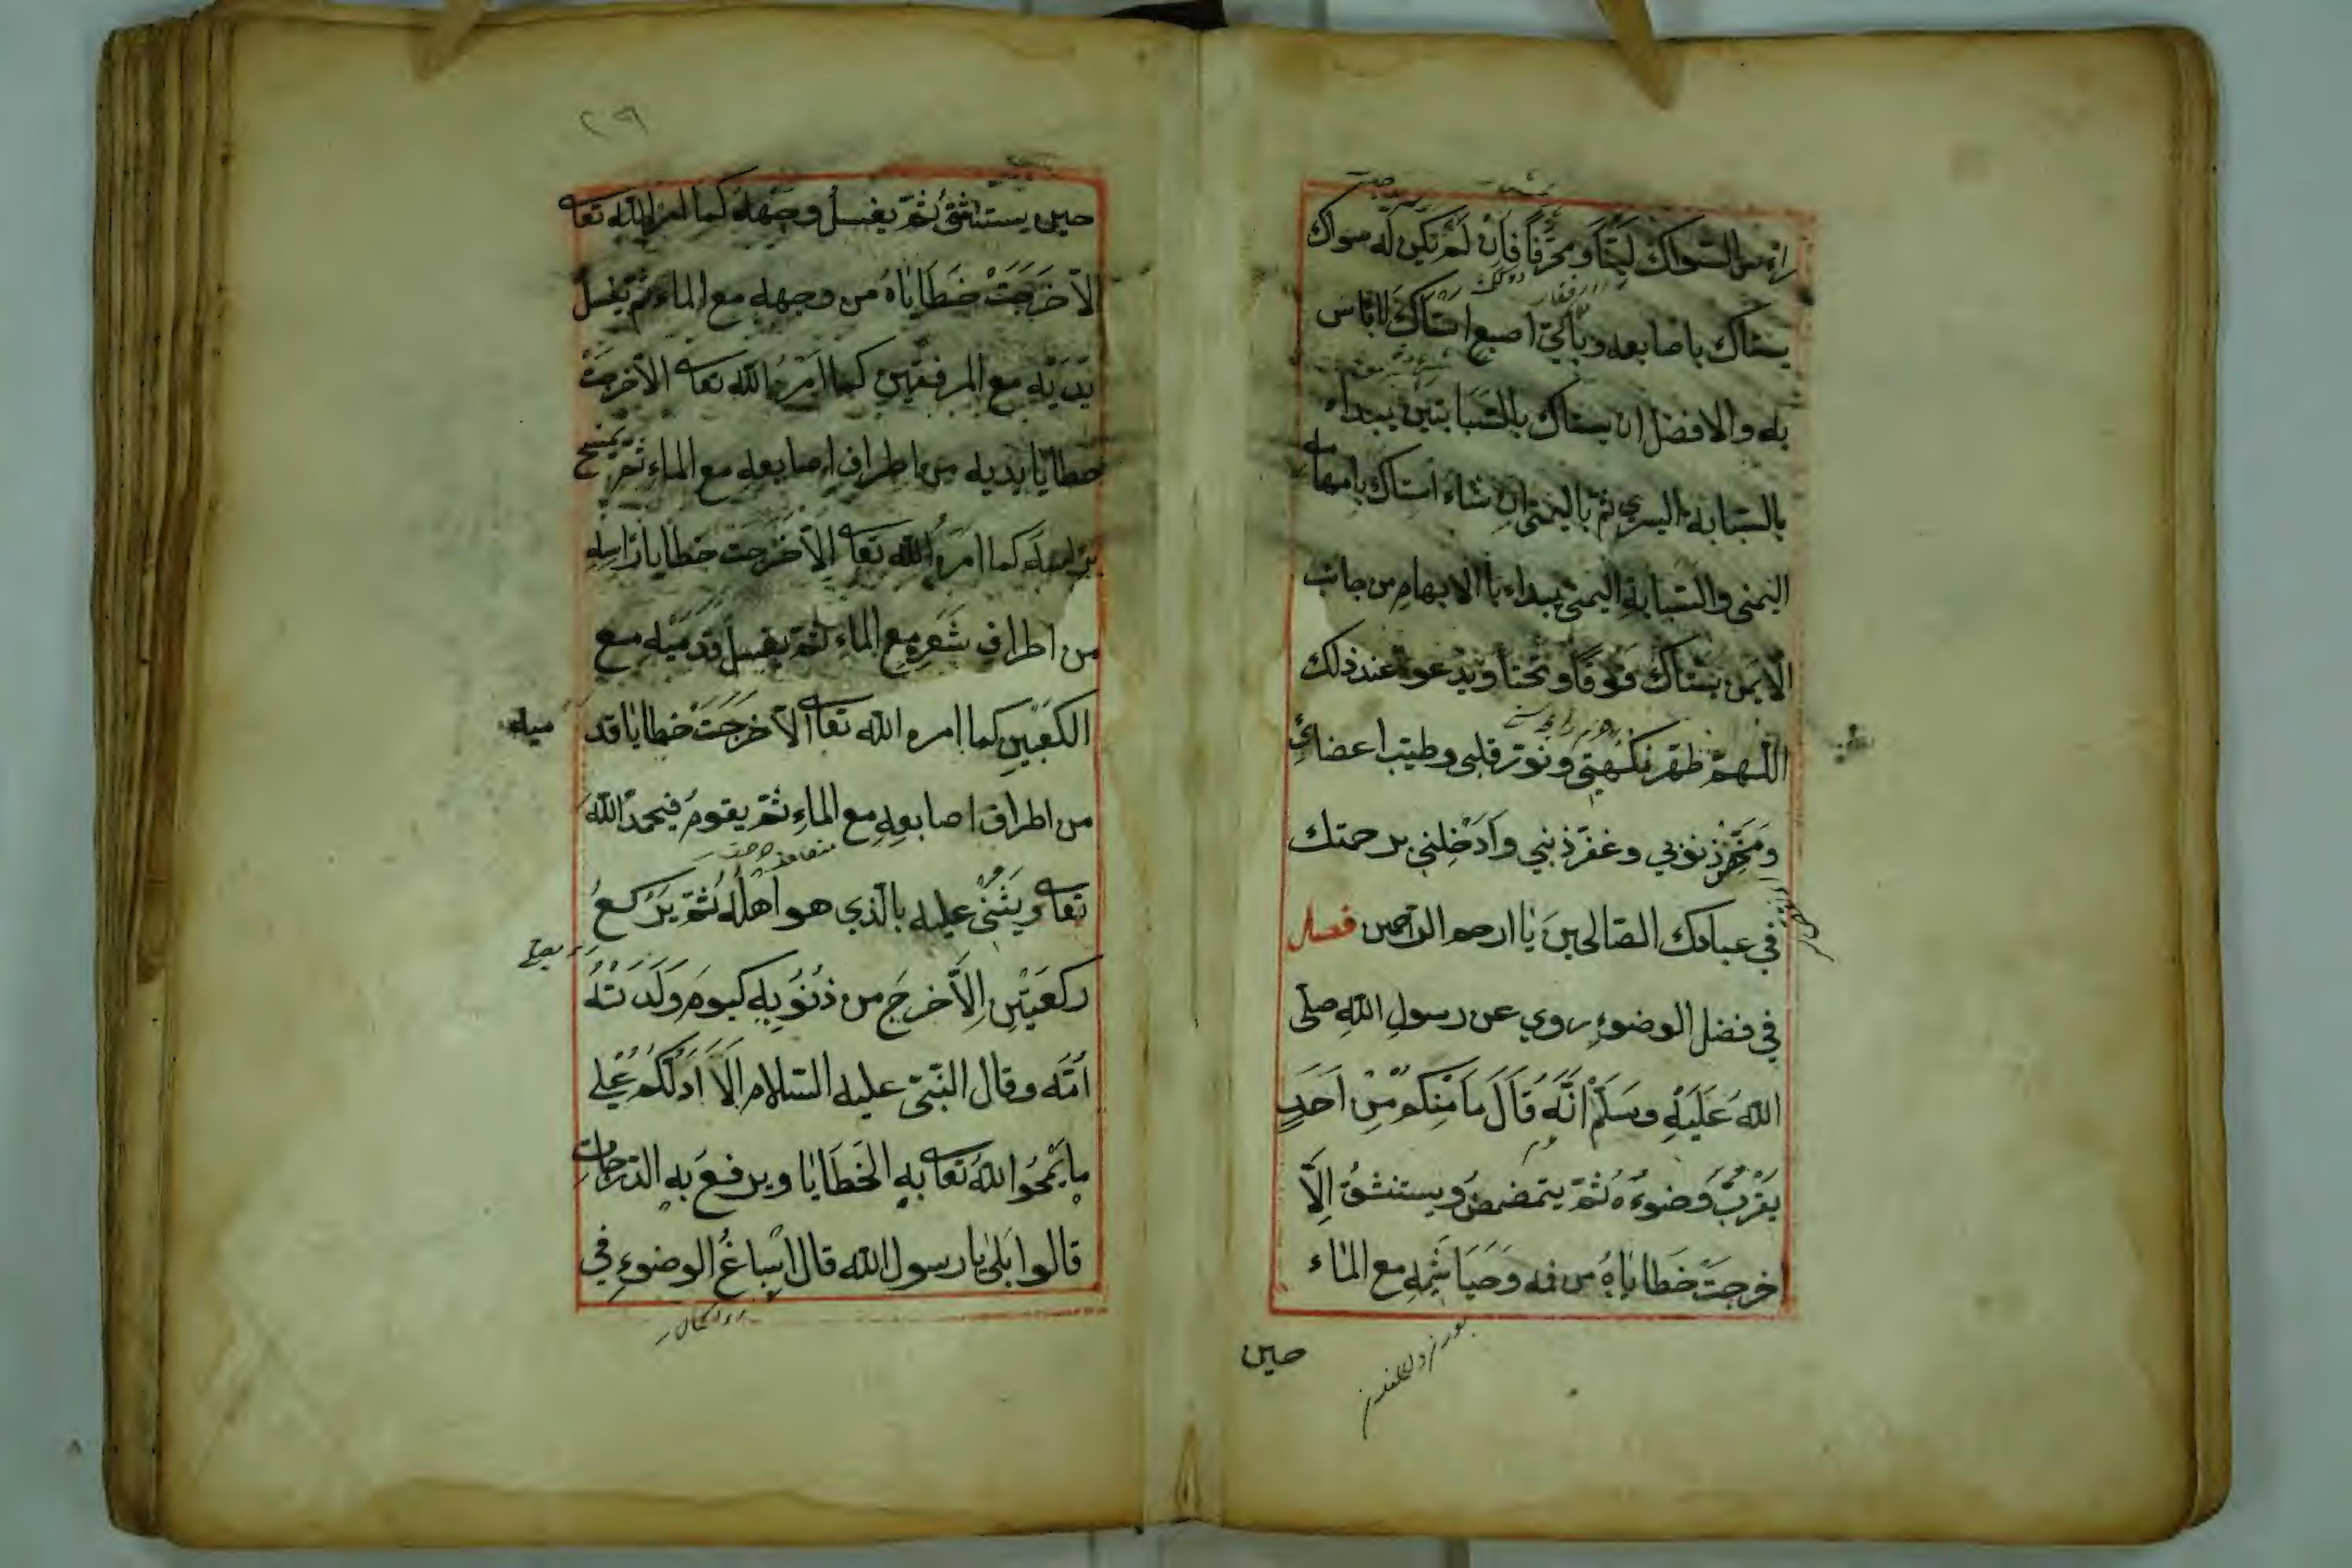 راس السواك لينا ومحرفا فان لم تكن له سواك
يستاك باصابعه وبأي اصبع استاك لا باس
به والافضل ان يستاك بالسبابتين يبداء
بالسبابة اليسري ثم باليمني ان شاء استاك بابهامه
اليمني والسبابة اليمني يبداء باالابهام من جانب
الايمن يستاك فوقا وتحتا ويدعوا عند ذلك
اللهم طهر نكهتي ونور قلبي وطيب اعضائي
ذنوبي وغفر ذنبي وادخلني برحمتك
في عبادك الصالحين يا ارحم الراحمين فصل
في فضل الوضوء روي عن رسول الله صلى
الله عليه وسلم انه قال ما منكم من احد
يقرب وضوءه ثم يتمضمض ويستنشق الا
خرجت خطاياه من فمه وخياشمه مع الماء
حين
٢٩
حين يستنشق ثم يغسل وجهه كما امره الله تعا
الا خرجت خطاياه من وجهه مع الماء ثم يغسل
يديه مع المرفقين كما امره الله تعا الا خرجت
خطايا يديه من اطراف اصابعه مع الماء ثم يمسح
براسه كما امره الله تعا الا خرجت خطايا راسه
من اطراف شعره مع الماء ثم يغسل قدميه مع
الكعبين كما امره الله تعا الا خرجت خطايا قد
ميه
من اطراف اصابعه مع الماء ثم يقوم فيحمد الله
تعا ويثني عليه بالذي هو اهله ثم يركع
ركعتين الا خرج من ذنوبه كيوم ولدته
امه وقال النبي عليه السلام الا ادلكم على
ما يمحوا الله تعا به الخطايا ويرفع به الدرجات
قالوا بلى يا رسول الله قال اسباغ الوضوء في